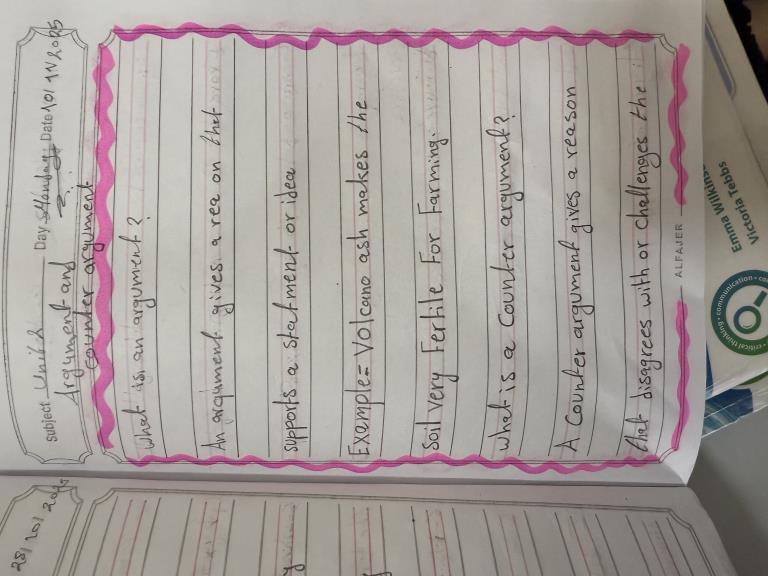 Subject Unit 2 Day Monday Date 10/11/2025
Argument and
counter argument
What is an argument?
An argument gives a rea on that
supports a statment or idea
Example= Volcano ash makes the
Soil very Fertile For Farming.
What is a Counter argument?
A Counter argument gives a reason
that disagrees with or challenges the
ALFAJER
Emma Wilkins
Victoria Tebbs
communication
critical thinking
28/10/2025